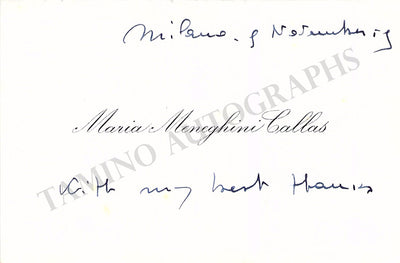 Milano. 9 Novembre 59
Maria Meneghini Callas
With my best thanks
TAMINO AUTOGRAPHS